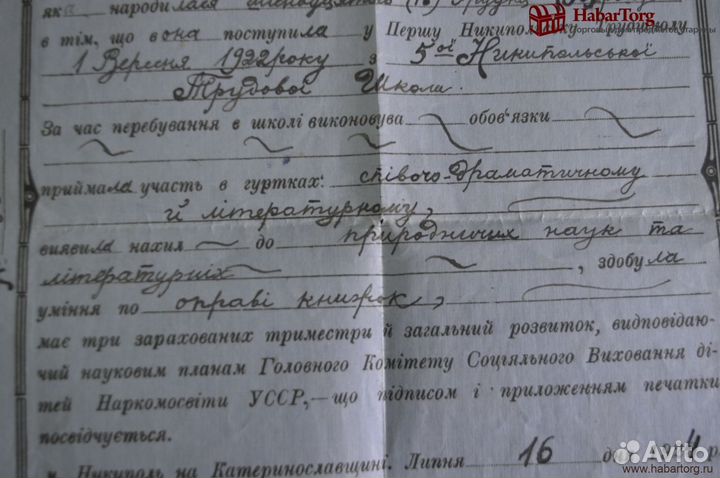 яка народилася
HabarTorg
Торговый дом предметов старины
в тім, що вона поступила у Першу Никипольську Трудшколу
1 Вересня 1922 року з 5ої Никипольської
Трудової Школи.
За час перебування в школі виконовува обов'язки
приймала участь в гуртках: співочо-драматичному
й літературному,
виявила нахил до природничих наук та
літературніх, здобула
уміння по оправі книжок,
має три зарахованих триместри й загальний розвиток, видповідаю-
чий науковим планам Головного Комітету Соціяльного Виховання ді-
тей Наркомосвіти УССР,—що підписом і приложенням печатки
посвідчується.
м. Никиполь на Катеринославщині. Липня 16 дня
Avito
www.habartorg.ru